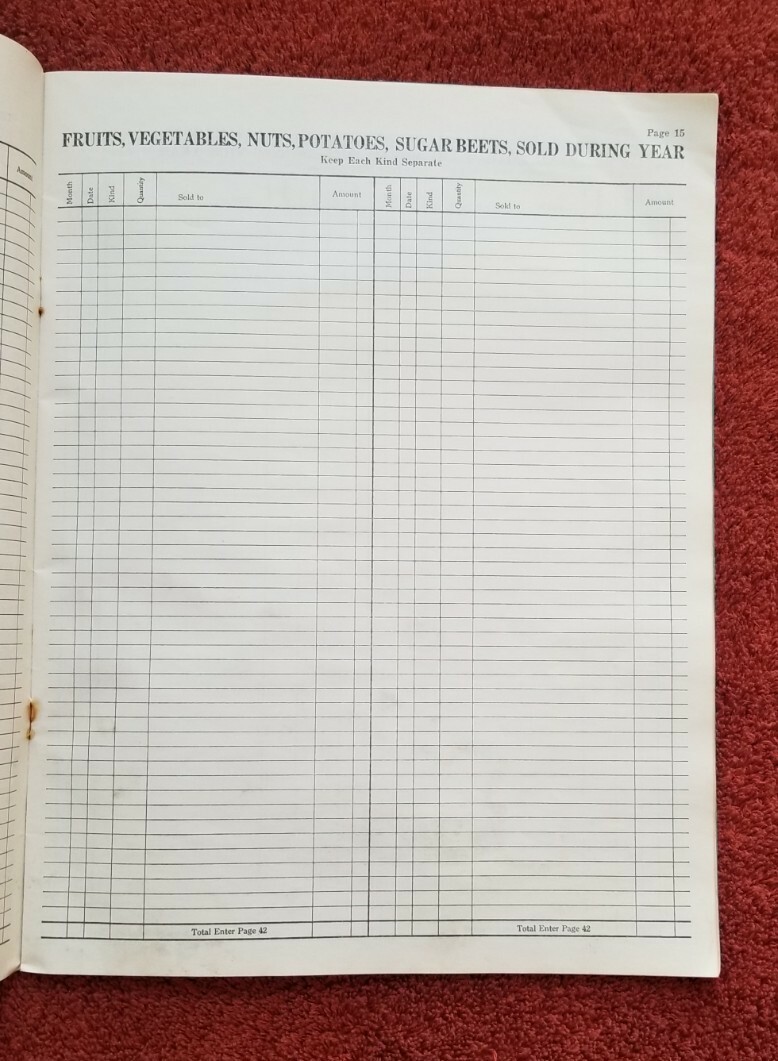 Amount
Page 15
FRUITS, VEGETABLES, NUTS, POTATOES, SUGAR BEETS, SOLD DURING YEAR
Keep Each Kind Separate
Month Date Kind Quantity Sold to Amount Month Date Kind Quantity Sold to Amount
Total Enter Page 42 Total Enter Page 42